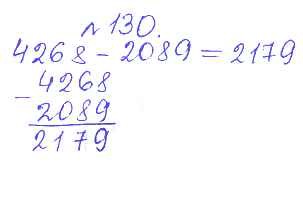 № 130.
4268 - 2089 = 2179
- 4268
2089
2179